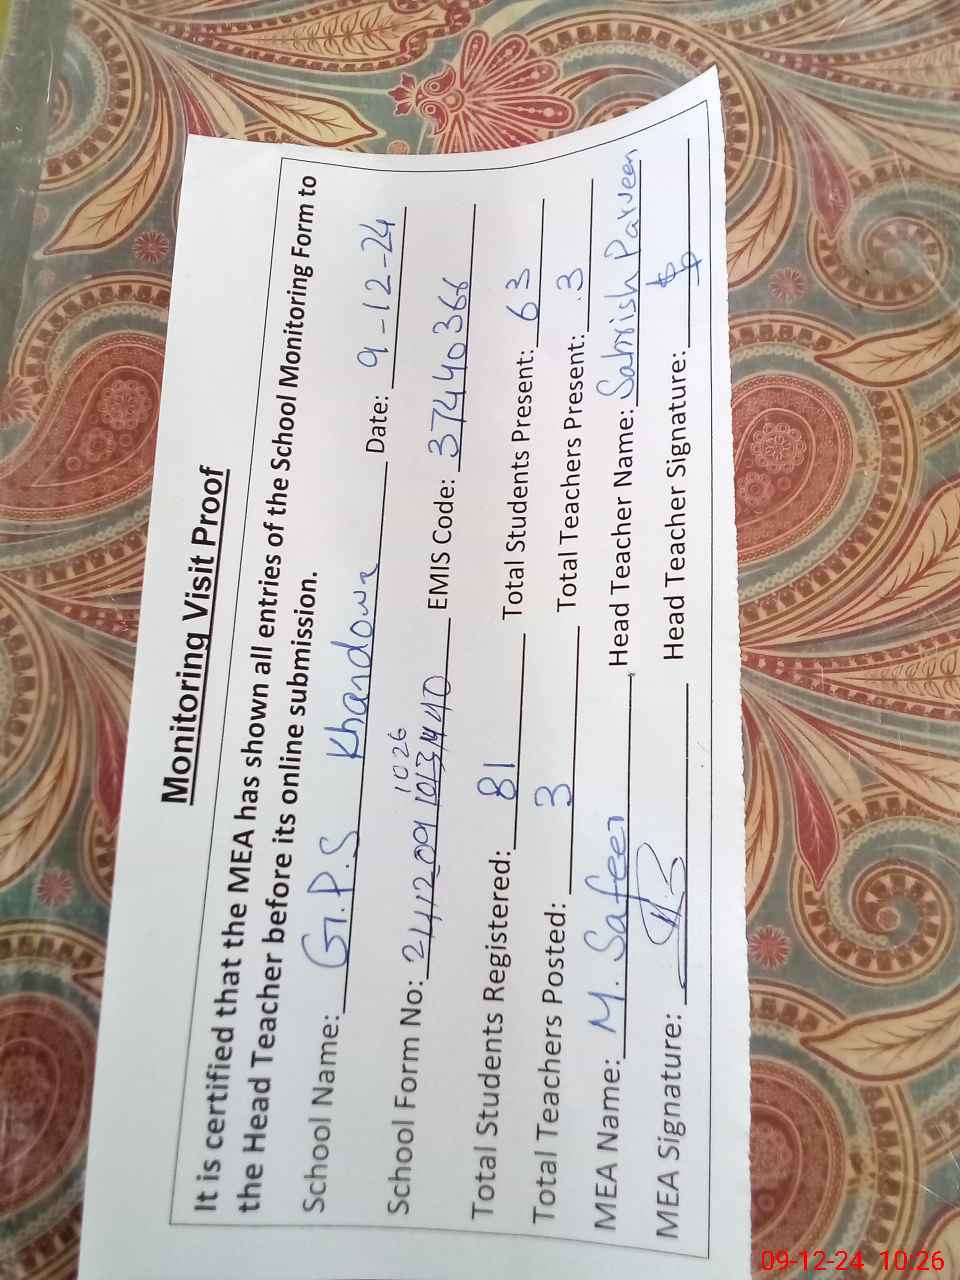 Monitoring Visit Proof
It is certified that the MEA has shown all entries of the School Monitoring Form to
the Head Teacher before its online submission.
School Name: G.P.S Khandowa Date: 9-12-24
1026
School Form No: 241209 EMIS Code: 37440366
Total Students Registered: 81 Total Students Present: 63
Total Teachers Posted: 3 Total Teachers Present: 3
MEA Name: M. Safeer Head Teacher Name: Sabrish Parveen
MEA Signature: Head Teacher Signature:
09-12-24 10:26